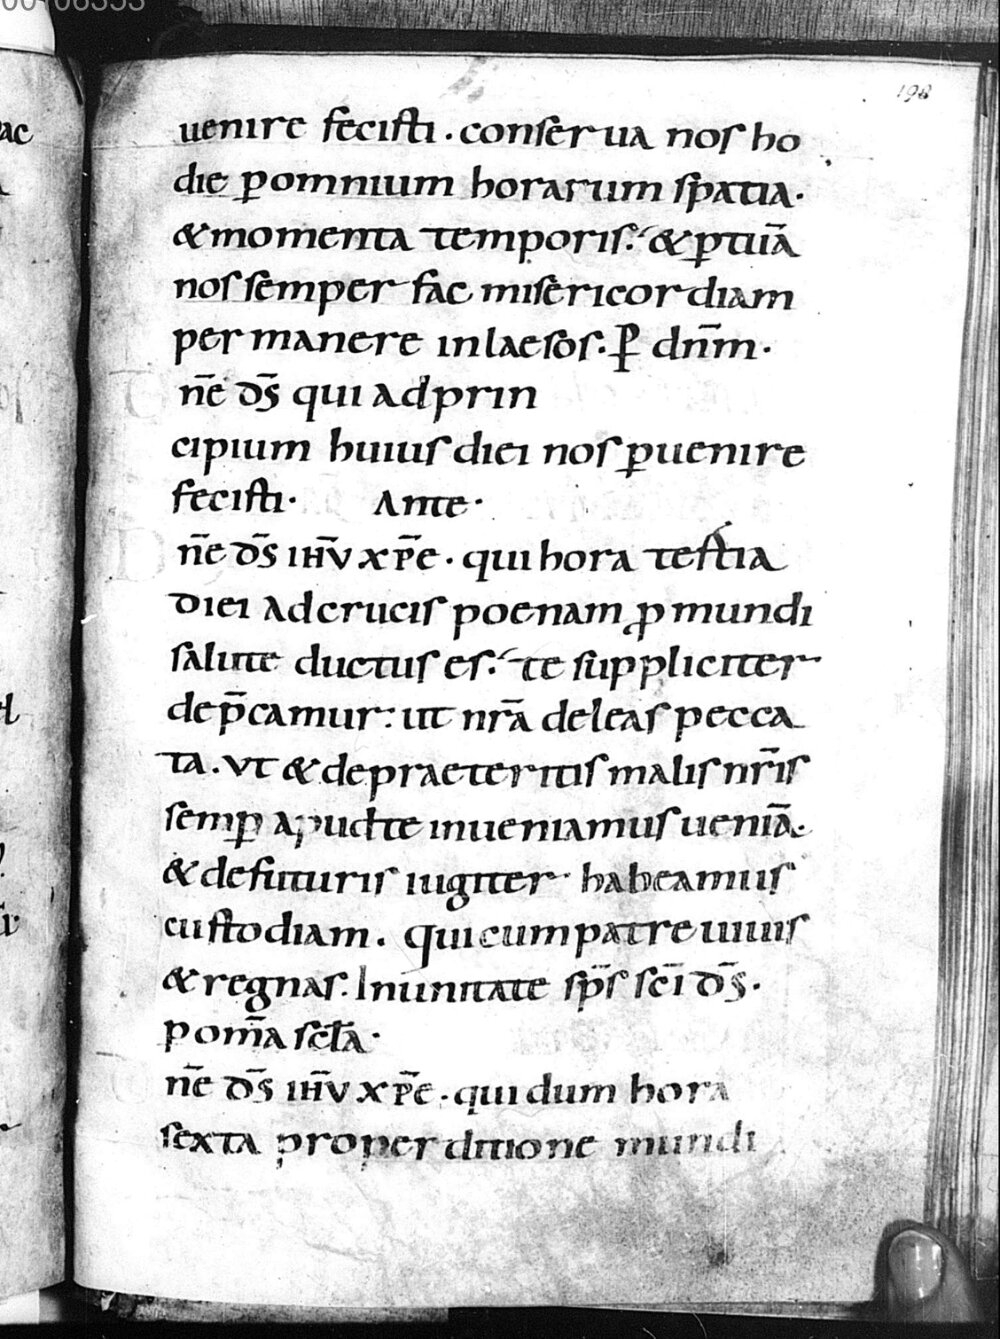 198
uenire fecisti. conserua nos ho
die ꝑ omnium horarum spatia.
& momenta temporis. & ꝑ tuā
nos semper fac misericordiam
permanere inlaesos. ꝑ dnm̄.
nē ds̄ qui ad prin
cipium huius diei nos ꝑuenire
fecisti. Ante.
nē ds̄ ihū xpē. qui hora testia
diei ad crucis poenam ꝓ mundi
salute ductus es. te suppliciter
dep̄camur: ut nrā deleas pecca
ta. ut & de praeteritis malis nrīs
semꝑ apud te inueniamus ueniā.
& de futuris iugiter habeamus
custodiam. qui cum patre uiuis
& regnas. In unitate sp̄s scī ds̄.
p om̄a scła.
nē ds̄ ihū xpē. qui dum hora
sexta pro perditione mundi